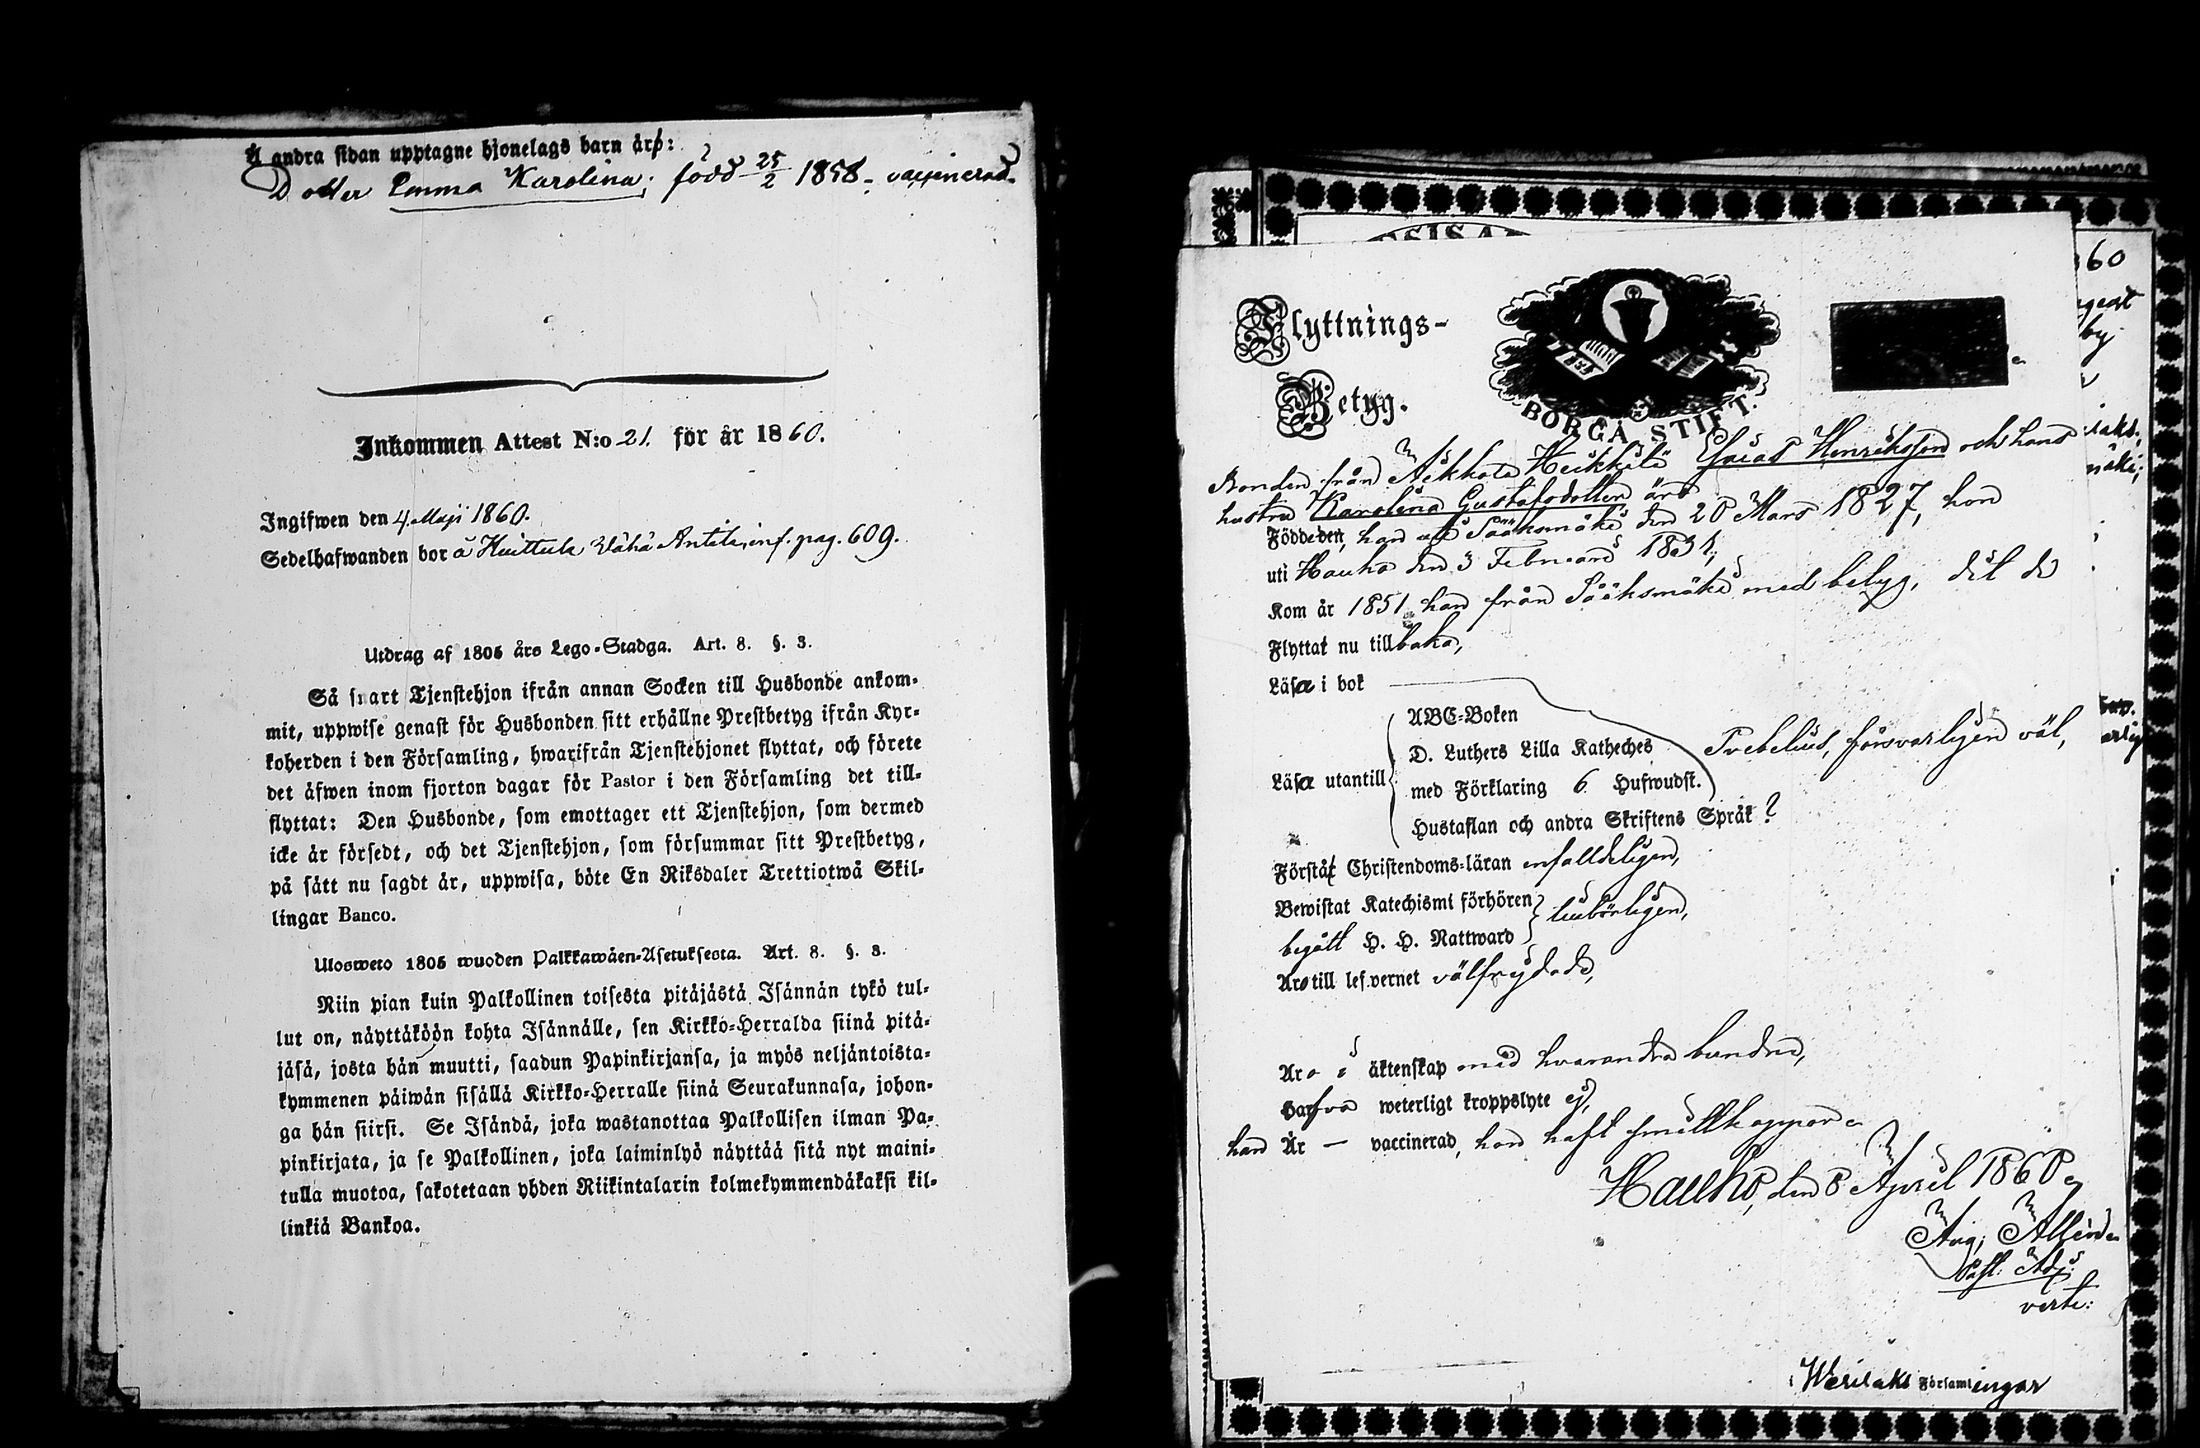 Å andra sidan upptagne hjonelags barn äro:
Dotter Emma Karolina, född 25/2 1858 - vaccinerad.
Inkommen Attest N:o 21. för år 1860.
Ingifwen den 4 Maji 1860.
Sedelhafwanden bor å Huittula Wähä Anttila, inf. pag. 609.
Utdrag af 1805 års Lego-Stadga. Art. 8. §. 3.
Så snart Tjenstehjon ifrån annan Socken till Husbonde ankom-
mit, uppwise genast för Husbonden sitt erhållne Prestbetyg ifrån Kyr-
koherden i den Församling, hwarifrån Tjenstehjonet flyttat, och förete
det äfwen inom fjorton dagar för Pastor i den Församling det till-
flyttat: Den Husbonde, som emottager ett Tjenstehjon, som dermed
icke är försedt, och det Tjenstehjon, som försummar sitt Prestbetyg,
på sätt nu sagdt är, uppwisa, böte En Riksdaler Trettiotwå Skil-
lingar Banco.
Ulosweto 1805 wuoden Palkkawäen-Asetuksesta. Art. 8. §. 3.
Niin pian kuin Palkollinen toisesta pitäjästä Isännän tykö tul-
lut on, näyttäköön kohta Isännälle, sen Kirkko-Herralda siinä pitä-
jäsä, josta hän muutti, saadun Papinkirjansa, ja myös neljäntoista-
kymmenen päiwän sisällä Kirkko-Herralle siinä Seurakunnasa, johon-
ga hän siirsi. Se Isändä, joka wastanottaa Palkollisen ilman Pa-
pinkirjata, ja se Palkollinen, joka laiminlyö näyttää sitä nyt maini-
tulla muotoa, sakotetaan yhden Riikintalarin kolmekymmendäkaksi kil-
linkiä Bankoa.
Flyttnings-
Betyg.
BORGÅ STIFT.
Bonden från Heikkilä Esaias Henriksson och hans
hustru Karolina Gustafsdotter äro
Födde den, han uti Sääksmäki den 20 Mars 1827, hon
uti Hauho den 3 Februari 1831,
Kom år 1851 han från Sääksmäki med betyg, dit de
Flyttat nu tillbaka,
Läsa i bok
Läsa utantill
ABC-Boken
D. Luthers Lilla Katheches
med Förklaring 6 Hufwudst.
Hustaflan och andra Skriftens Språk
Svebelius, försvarligen väl,
Förstå Christendoms-läran enfalldeligen,
Bewistat Katechismi förhören
begått H. H. Nattward
tillbörligen,
Äro till lefwernet välfrejdade,
Äro i äktenskap med hvarandra bundne,
Hafva weterligt kroppslyte ej,
han Är — vaccinerad, hon haft smittkoppor
Hauho, den 8 April 1860
Aug; Allénd
Past: Adj:
verte:
i Wesilaks Församlingar
60
by